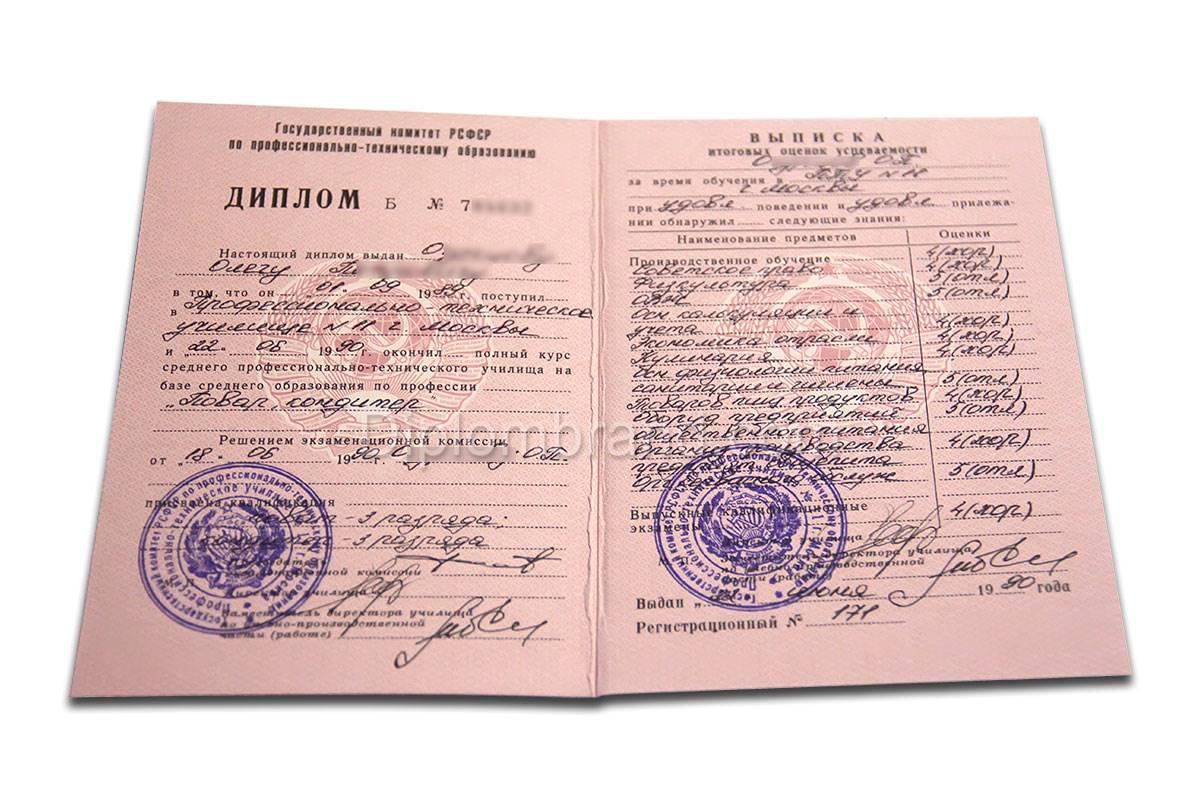 Государственный комитет РСФСР
по профессионально-техническому образованию
ДИПЛОМ Б № 7
Настоящий диплом выдан О
Олегу П
в том, что он 01 09 19 г. поступил
в Профессионально техническое
училище N 11 г. Москвы
и „22“ 06 1990 г. окончил полный курс
среднего профессионально-технического училища на
базе среднего образования по профессии
„Повар, кондитер“
Решением экзаменационной комиссии
от „18“ 06 1990 г. О.П.
присвоена квалификация
повар - 3 разряда;
кондитер - 3 разряда
Председатель
экзаменационной комиссии
Директор училища
Заместитель директора училища
по учебно-производственной
части (работе)
ВЫПИСКА
итоговых оценок успеваемости
О О.П.
за время обучения в ПТУ N 11
г. Москвы
при удовл поведении и удовл прилежа-
нии обнаружил следующие знания:
Наименование предметов Оценки
Производственное обучение 4 (хор.)
Советское право 4 (хор.)
Физкультура 5 (отл.)
5 (отл.)
Осн калькуляции и
учета 4 (хор.)
Экономика отрасли 4 (хор.)
Кулинария 4 (хор.)
Осн физиологии питания
санитарии и гигиены 5 (отл.)
Товаров пищ продуктов 4 (хор.)
Оборуд предприятий 5 (отл.)
общественного питания
Организ производства 4 (хор.)
5 (отл.)
Выпускные квалификационные
экзамены 4 (хор.)
Директор училища
Заместитель директора училища
по учебно-производственной
части (работе)
Выдан „22“ июня 1990 года
Регистрационный № 171
Diplombra